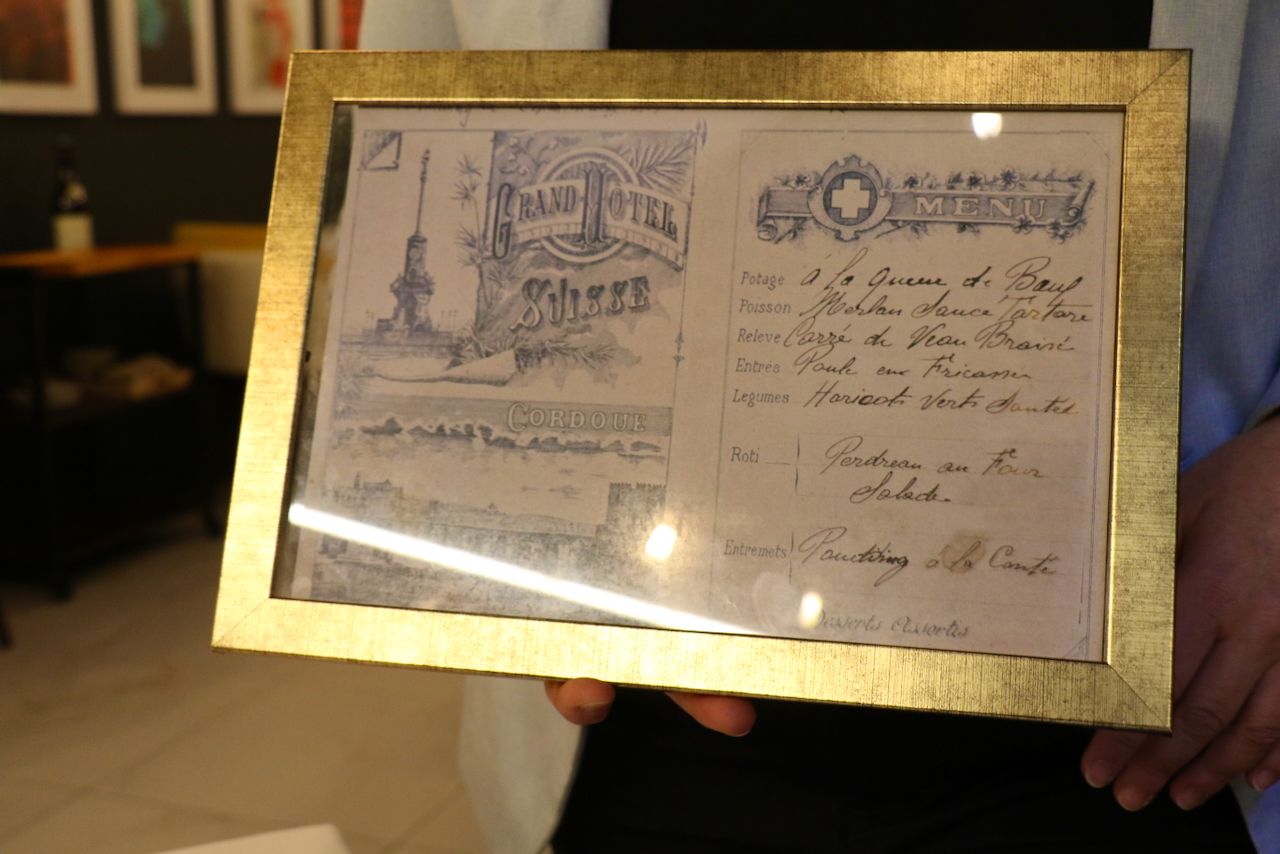 GRAND HOTEL
SUISSE
CORDOUE
MENU
Potage à la Queue de Bœuf
Poisson Merlan Sauce Tartare
Releve Carré de Veau Braisé
Entrée Poule en Fricasse
Legumes Haricots Verts Sautés
Roti Perdreau au Four
Salade
Entremets Pouding a la
Desserts Assortis